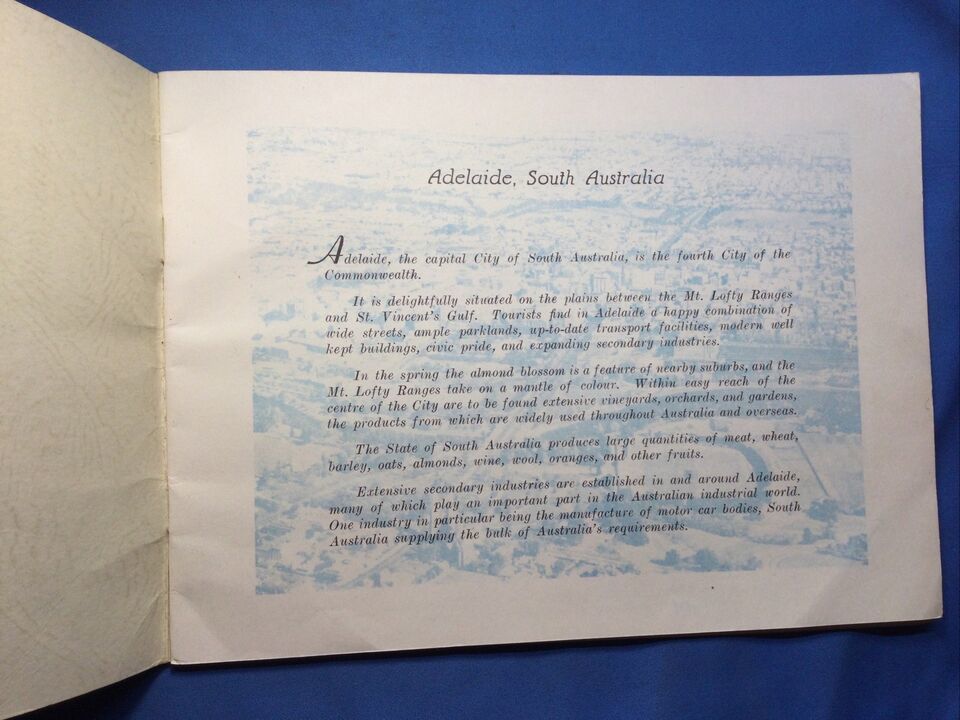 Adelaide, South Australia
Adelaide, the capital City of South Australia, is the fourth City of the
Commonwealth.
It is delightfully situated on the plains between the Mt. Lofty Ranges
and St. Vincent's Gulf. Tourists find in Adelaide a happy combination of
wide streets, ample parklands, up-to-date transport facilities, modern well
kept buildings, civic pride, and expanding secondary industries.
In the spring the almond blossom is a feature of nearby suburbs, and the
Mt. Lofty Ranges take on a mantle of colour. Within easy reach of the
centre of the City are to be found extensive vineyards, orchards, and gardens,
the products from which are widely used throughout Australia and overseas.
The State of South Australia produces large quantities of meat, wheat,
barley, oats, almonds, wine, wool, oranges, and other fruits.
Extensive secondary industries are established in and around Adelaide,
many of which play an important part in the Australian industrial world.
One industry in particular being the manufacture of motor car bodies, South
Australia supplying the bulk of Australia's requirements.